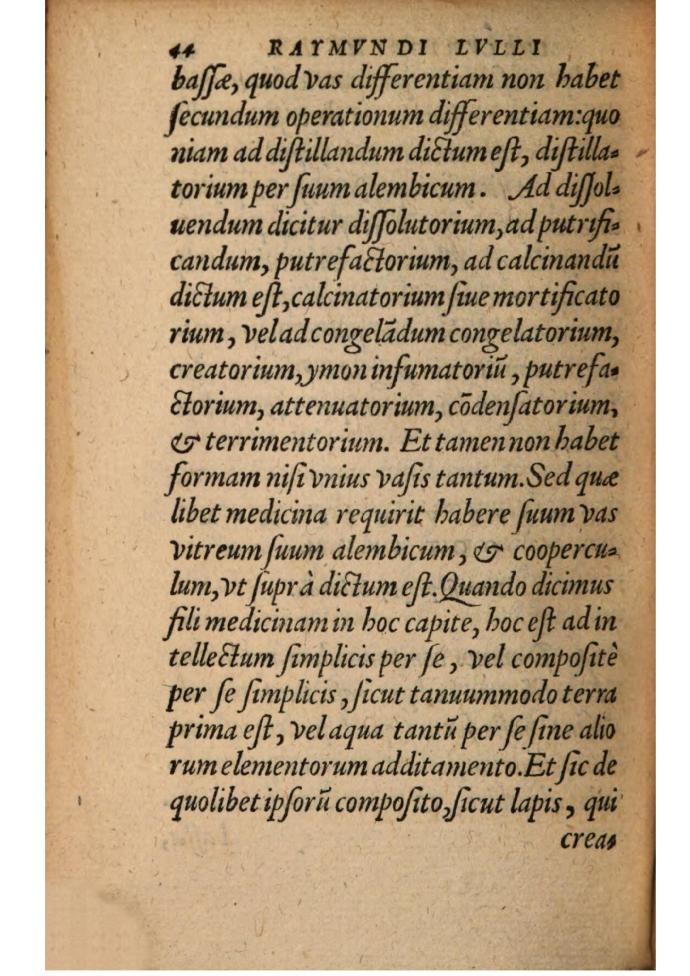 44 RAYMVNDI LVLLI
baſſæ, quod vas differentiam non habet
ſecundum operationum differentiam:quo
niam ad diſtillandum dictum eſt, diſtilla-
torium per ſuum alembicum. Ad diſſol-
uendum dicitur diſſolutorium, ad putrifi-
candum, putrefactorium, ad calcinandũ
dictum eſt, calcinatorium ſiue mortificato
rium, vel ad congelãdum congelatorium,
creatorium, ymon infumatoriũ, putrefa-
ctorium, attenuatorium, cõdenſatorium,
& terrimentorium. Et tamen non habet
formam niſi vnius vaſis tantum. Sed quæ
libet medicina requirit habere ſuum vas
vitreum ſuum alembicum, & coopercu-
lum, vt ſuprà dictum eſt. Quando dicimus
fili medicinam in hoc capite, hoc eſt ad in
tellectum ſimplicis per ſe, vel compoſitè
per ſe ſimplicis, ſicut tanuummodo terra
prima eſt, vel aqua tantũ per ſe ſine alio
rum elementorum additamento. Et ſic de
quolibet ipſorũ compoſito, ſicut lapis, qui
crea-